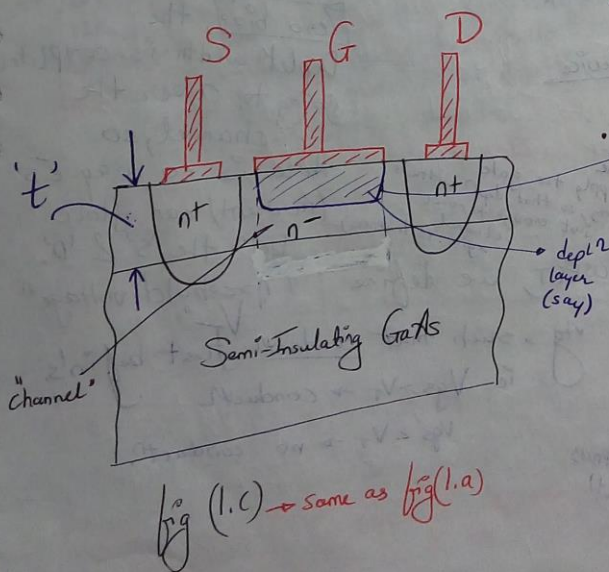 S G D
't'
n+
n-
n+
depl^n
layer
(say)
Semi-Insulating GaAs
"channel"
fig (1.c) → same as fig(1.a)